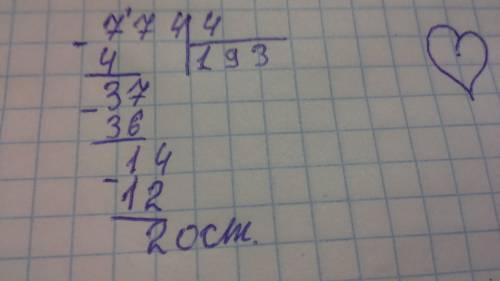 774 4
- 4 193
37
- 36
14
- 12
2 ост.